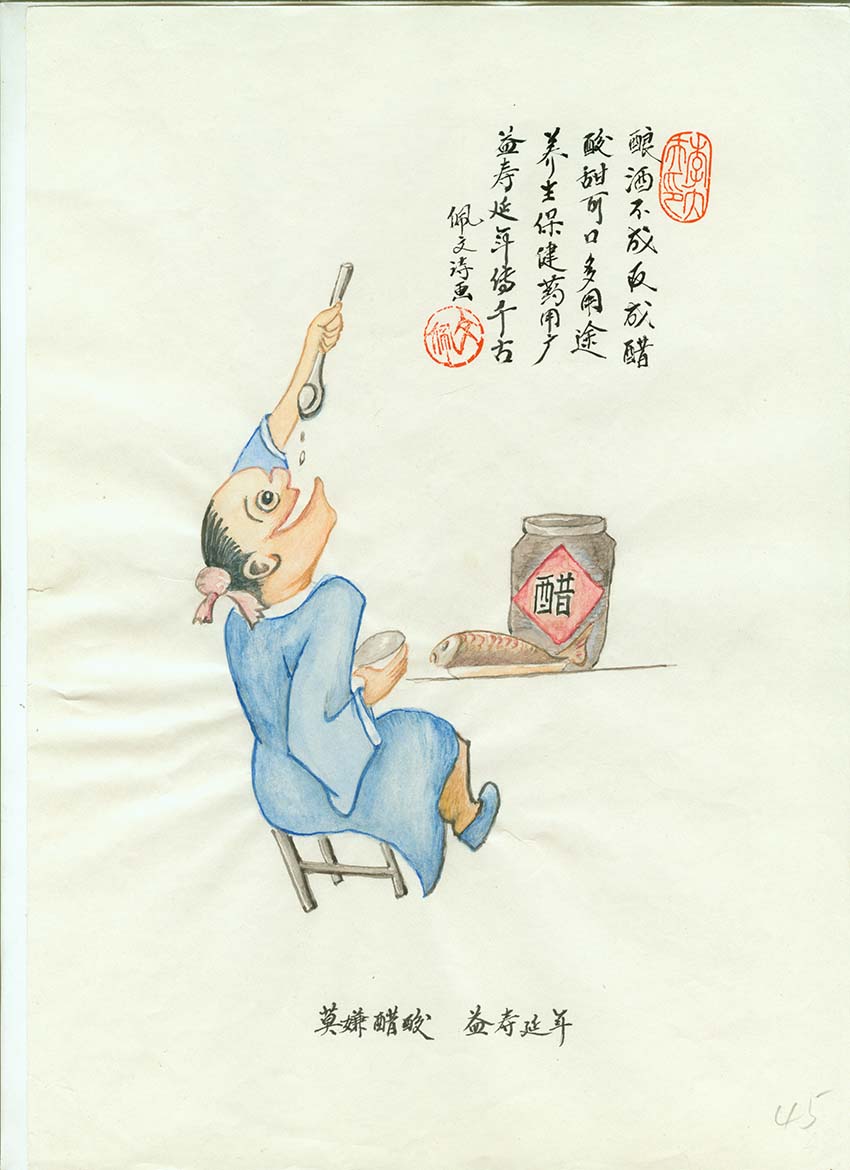 酿酒不成反成醋
酸甜可口多用途
养生保健药用广
益寿延年传千古
佩文诗画
佩文
醋
莫嫌醋酸 益寿延年
45